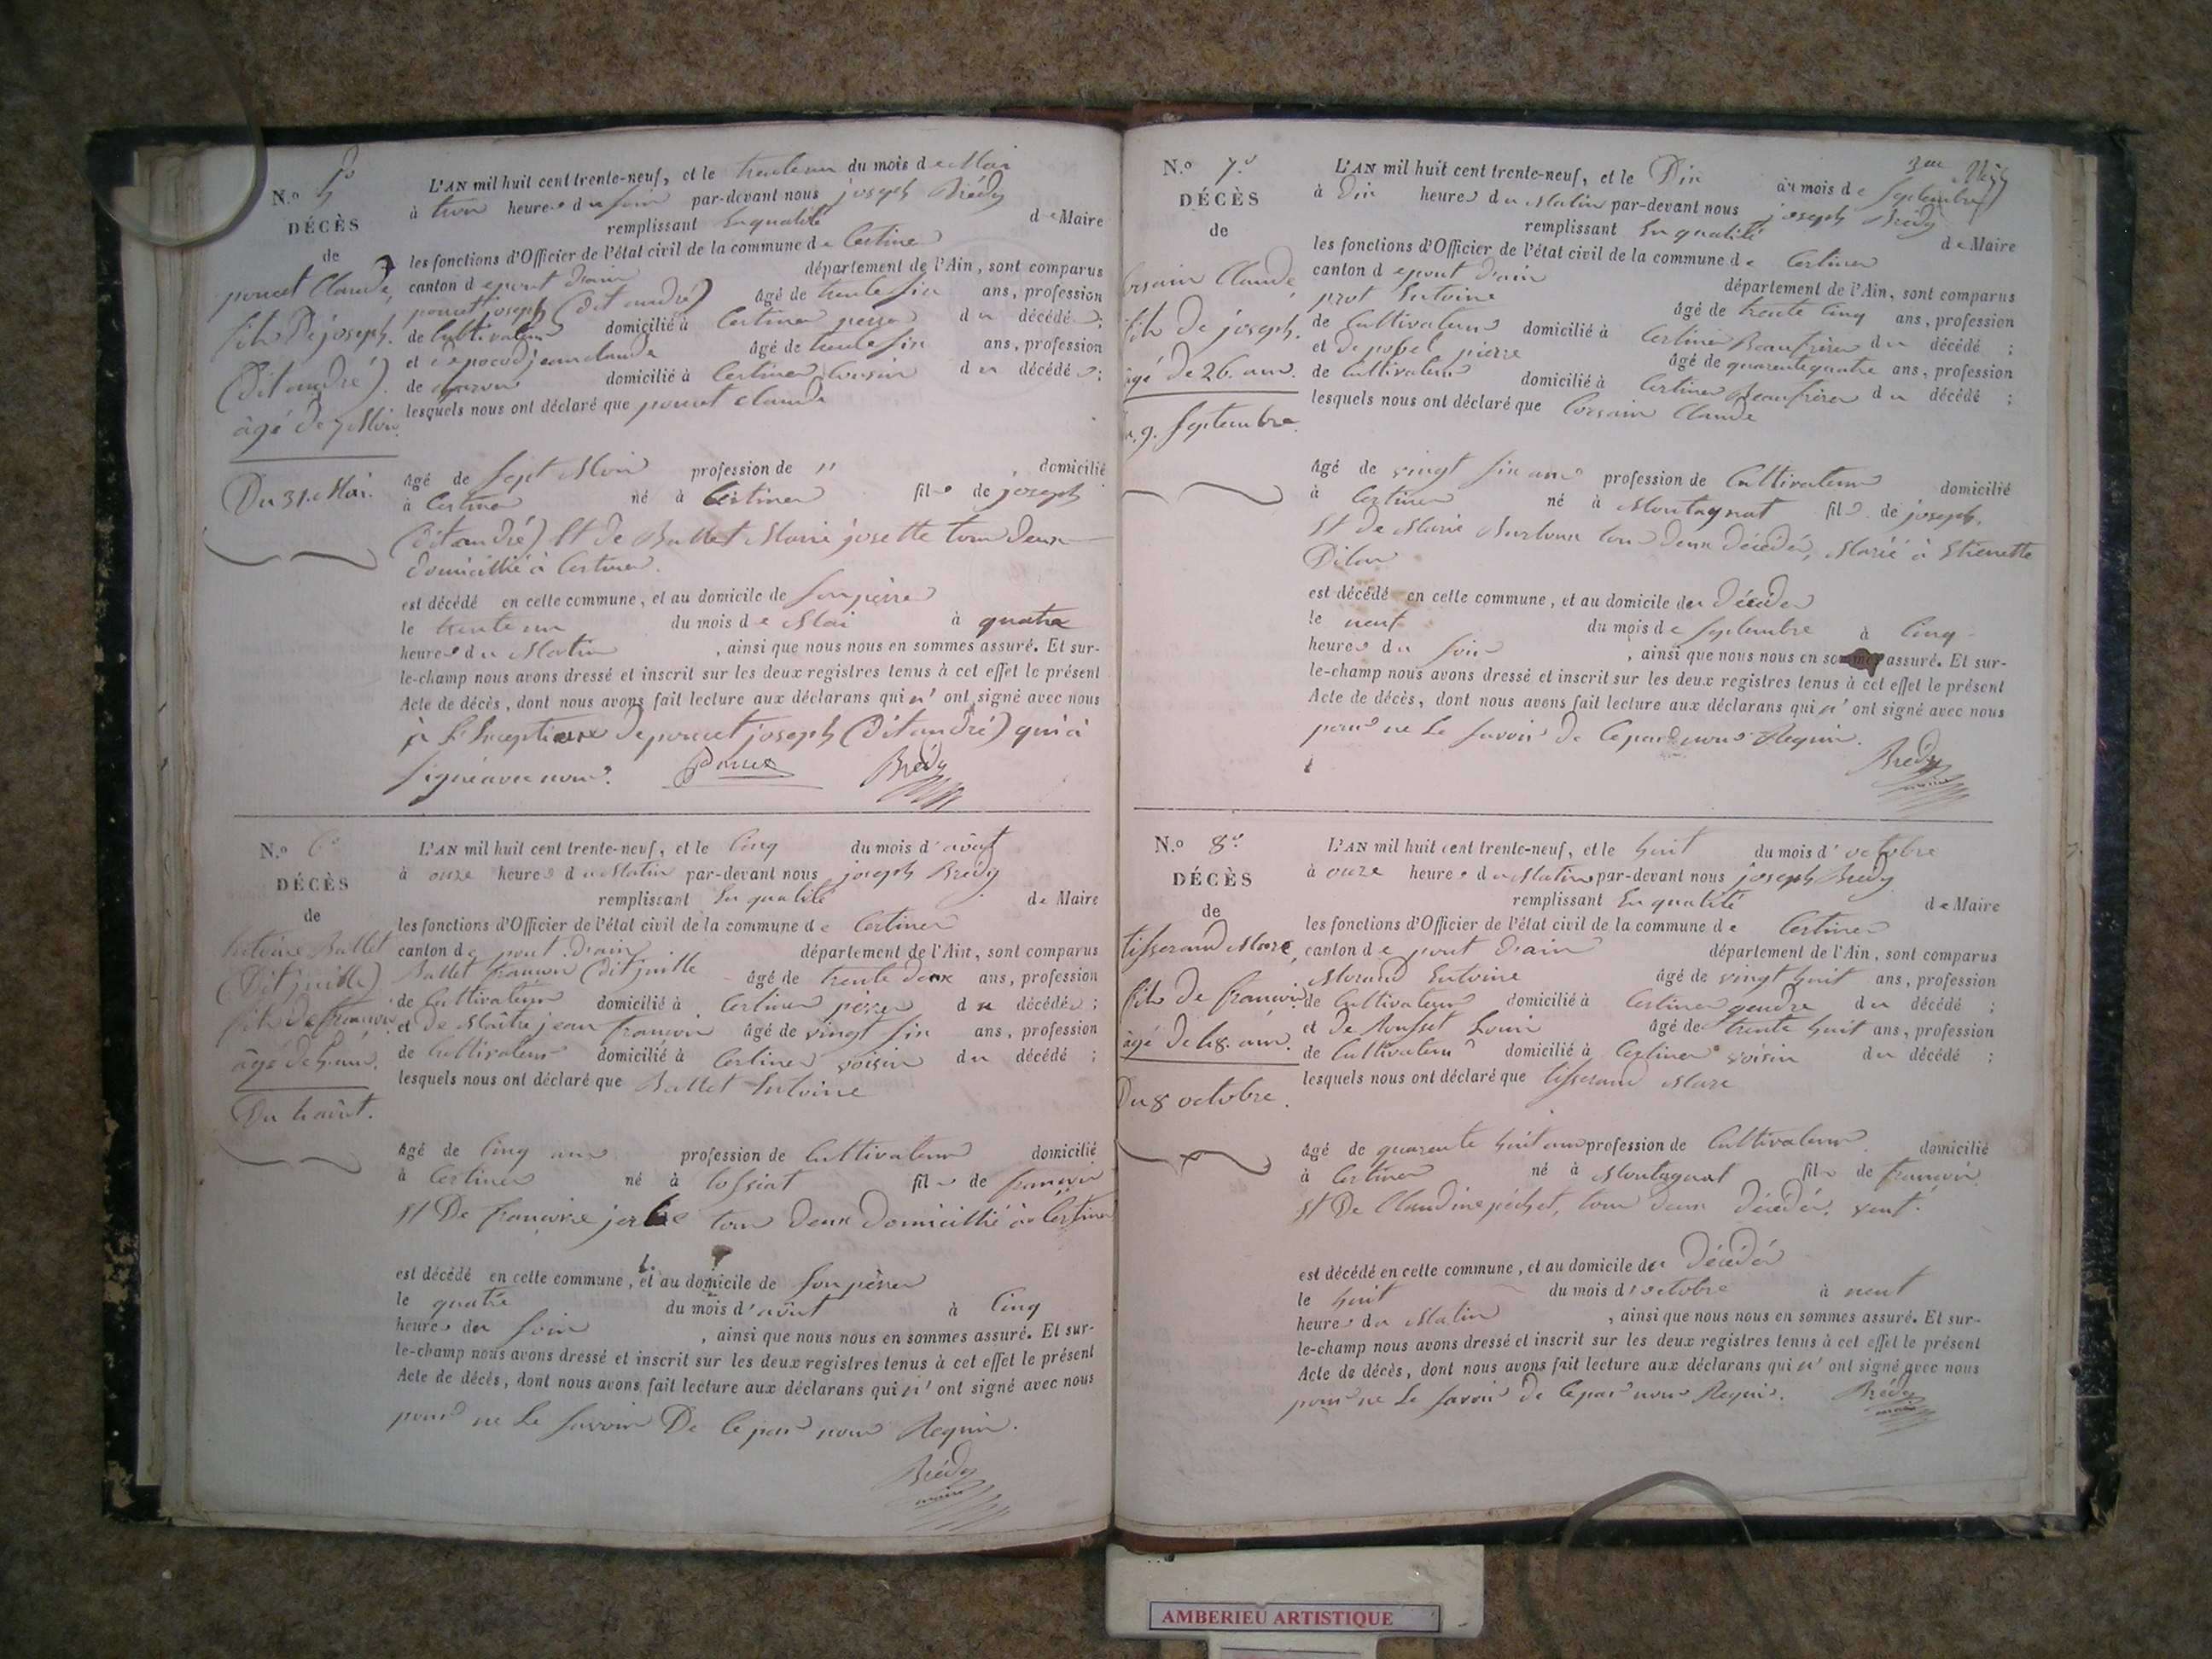 N.º 5º
DÉCÈS
de
poncet Claude,
fils De joseph.
(Dit andré).
âgé De 7 Mois.
Du 31. Mai.
L'AN mil huit cent trente-neuf, et le trente un du mois de Mai
à trois heures du soir par-devant nous joseph Brédy
remplissant En qualité de Maire
les fonctions d'Officier de l'état civil de la commune de Certines
canton de pont d'ain département de l'Ain, sont comparus
poncet joseph (Dit andré) âgé de trente six ans, profession
de Cultivateur domicilié à Certines perre du décédé;
et jean claude âgé de trente six ans, profession
de domicilié à Certines, voisin du décédé;
lesquels nous ont déclaré que poncet Claude
âgé de Sept Mois profession de " , domicilié
à Certines né à Certines fils de joseph
(Dit andré) Et De Ballet Marie josette tous Deux
Domicillié à Certines.
est décédé en cette commune, et au domicile de son père
le trente un du mois de Mai à quatre
heures du Matin , ainsi que nous nous en sommes assuré. Et sur-
le-champ nous avons dressé et inscrit sur les deux registres tenus à cet effet le présent
Acte de décès, dont nous avons fait lecture aux déclarans qui n' ont signé avec nous
à De poncet joseph (Dit andré) qui à
signé avec nous.
Brédy
N.º 6º
DÉCÈS
de
Antoine Ballet
(Dit juille)
fils De françois
âgé De 5 ans.
Du 4 août.
L'AN mil huit cent trente-neuf, et le Cinq du mois d'août
à onze heures du Matin par-devant nous joseph Brédy
remplissant En qualité de Maire
les fonctions d'Officier de l'état civil de la commune de Certines
canton de pont D'ain département de l'Ain, sont comparus
Ballet françois (Dit juille âgé de trente deux ans, profession
de Cultivateur domicilié à Certines père du décédé;
et de Maître jean françois âgé de vingt six ans, profession
de Cultivateur domicilié à Certines voisin du décédé;
lesquels nous ont déclaré que Ballet Antoine
âgé de Cinq ans profession de Cultivateur domicilié
à Certines né à tossiat fils de françois
Et De françoise tous Deux Domicillié à Certines
est décédé en cette commune, et au domicile de son père
le quatre du mois d'août à Cinq
heures du soir , ainsi que nous nous en sommes assuré. Et sur-
le-champ nous avons dressé et inscrit sur les deux registres tenus à cet effet le présent
Acte de décès, dont nous avons fait lecture aux déclarans qui n' ont signé avec nous
pour ne Le savoir De Ce par nous Requis.
Brédy
maire
N.º 7º
DÉCÈS
de
Corsain Claude
fils De joseph.
âgé De 26. ans.
9. Septembre
L'AN mil huit cent trente-neuf, et le Dix du mois de Septembre
à Dix heures du Matin par-devant nous joseph Brédy
remplissant En qualité de Maire
les fonctions d'Officier de l'état civil de la commune de Certines
canton de pont d'ain département de l'Ain, sont comparus
prost Antoine âgé de trente Cinq ans, profession
de Cultivateur domicilié à Certines Beaufrère du décédé;
et De pobel pierre âgé de quarente quatre ans, profession
de Cultivateur domicilié à Certines Beaufrère du décédé;
lesquels nous ont déclaré que Corsain Claude
âgé de vingt six ans profession de Cultivateur domicilié
à Certines né à Montagnat fils de joseph.
Et De Marie tous Deux Décédés, Marié à Etienette
est décédé en cette commune, et au domicile du Décédé
le neuf du mois de Septembre à Cinq
heures du soir , ainsi que nous nous en sommes assuré. Et sur-
le-champ nous avons dressé et inscrit sur les deux registres tenus à cet effet le présent
Acte de décès, dont nous avons fait lecture aux déclarans qui n' ont signé avec nous
pour ne Le savoir De Ce par nous Requis.
Brédy
maire
N.º 8º
DÉCÈS
de
tisserand Marc,
fils De françois
âgé De 48. ans.
Du 8 octobre.
L'AN mil huit cent trente-neuf, et le huit du mois d'octobre
à onze heures du Matin par-devant nous joseph Brédy
remplissant En qualité de Maire
les fonctions d'Officier de l'état civil de la commune de Certines
canton de pont d'ain département de l'Ain, sont comparus
Morand Antoine âgé de vingt huit ans, profession
de Cultivateur domicilié à Certines gendre du décédé;
et De Rousset Louis âgé de trente huit ans, profession
de Cultivateur domicilié à Certines voisin du décédé;
lesquels nous ont déclaré que tisserand Marc
âgé de quarente huit ans profession de Cultivateur domicilié
à Certines né à Montagnat fils de françois.
Et De Claudine péchet, tous Deux Décédés, veuf.
est décédé en cette commune, et au domicile du Décédé
le huit du mois d'octobre à neuf
heures du Matin , ainsi que nous nous en sommes assuré. Et sur-
le-champ nous avons dressé et inscrit sur les deux registres tenus à cet effet le présent
Acte de décès, dont nous avons fait lecture aux déclarans qui n' ont signé avec nous
pour ne Le savoir De Ce par nous Requis.
Brédy
maire
AMBERIEU ARTISTIQUE